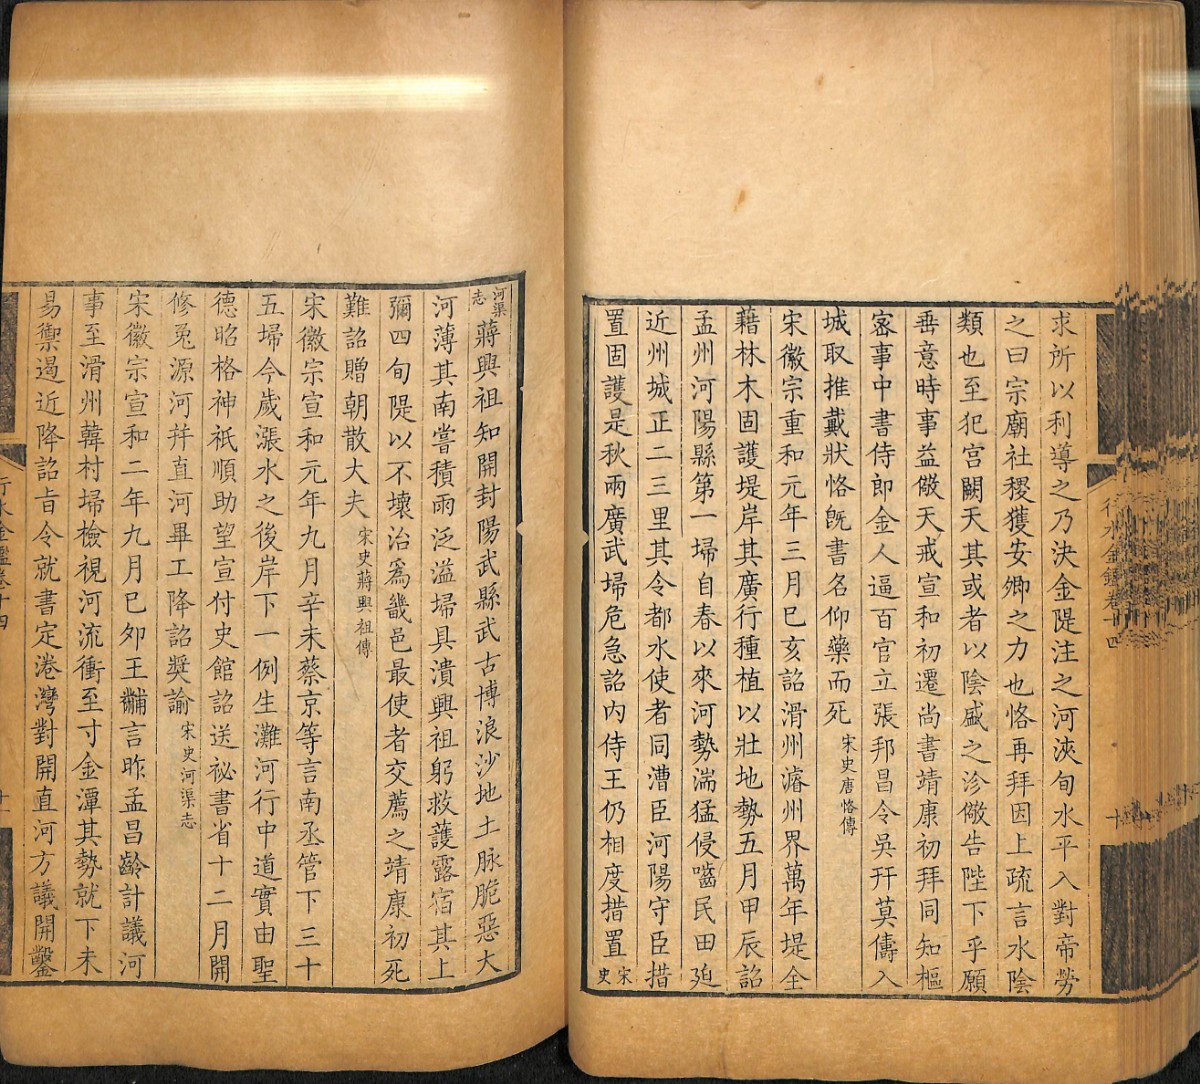 求所以利導之乃決金隄注之河浹旬水平入對帝勞
之曰宗廟社稷獲安卿之力也恪再拜因上疏言水陰
類也至犯宮闕天其或者以陰盛之沴儆告陛下乎願
垂意時事益儆天戒宣和初遷尚書靖康初拜同知樞
宻事中書侍郎金人逼百官立張邦昌令吳幵莫儔入
城取推戴狀恪旣書名仰藥而死宋史唐恪傳
宋徽宗重和元年三月巳亥詔滑州濬州界萬年堤全
藉林木固護堤岸其廣行種植以壯地勢五月甲辰詔
孟州河陽縣第一埽自春以來河勢湍猛侵嚙民田廹
近州城正二三里其令都水使者同漕臣河陽守臣措
置固護是秋雨廣武埽危急詔內侍王仍相度措置宋史
河渠志蔣興祖知開封陽武縣武古博浪沙地土脉脆惡大
河薄其南嘗積雨泛溢埽具潰興祖躬救護露宿其上
彌四旬隄以不壞治爲畿邑最使者交薦之靖康初死
難詔贈朝散大夫宋史蔣興祖傳
宋徽宗宣和元年九月辛未蔡京等言南丞管下三十
五埽今歲漲水之後岸下一例生灘河行中道實由聖
德昭格神祇順助望宣付史館詔送祕書省十二月開
修兔源河幷直河畢工降詔獎諭宋史河渠志
宋徽宗宣和二年九月巳卯王黼言昨孟昌齡計議河
事至滑州韓村埽檢視河流衝至寸金潭其勢就下未
易禦遏近降詔旨令就書定港灣對開直河方議開鑿
行水金鑑卷十四